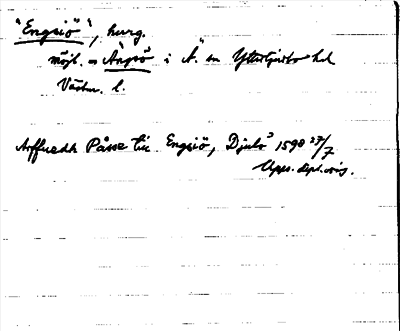 "Engsiö", hurg.
möjl. = Ängsö i Ä. sn Yttertjurbo hd
Västm. l.
Arffuedh Påsse till Engsiö, Djulö 1590 27/7
Upps. dipl. avis.